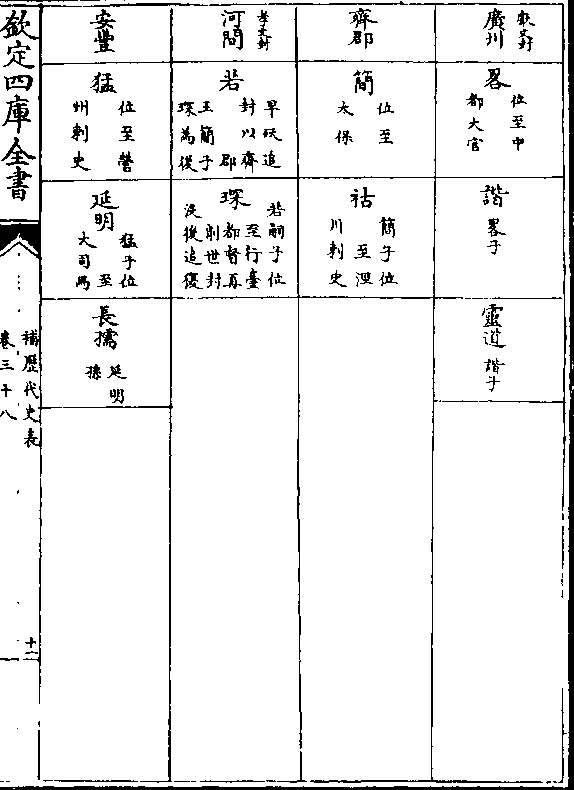 廣川 獻文封
畧 位至中都大官
諧 畧子
靈道 諧子
齊郡
簡 位至太保
祜 簡子位至涇川刺史
河間 孝文封
若 早殀追封以齊郡王簡子琛為後
琛 若嗣子位至行臺都督再削世封沒後追復
安豐
猛 位至營州刺史
延明 猛子位至大司馬
長孺 延明孫
欽定四庫全書
補歷代史表
卷三十八
十二